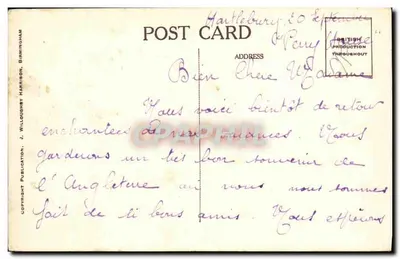 Hartlebury, 20 Septembre
POST CARD
ADDRESS
BRITISH
PRODUCTION
THROUGHOUT
Bien Chère Madame
Nous voici bientôt de retour
enchantées de nos vacances. Nous
garderons un très bon souvenir de
l'Angleterre où nous nous sommes
fait de si bons amis. Nous espérons
COPYRIGHT PUBLICATION. J. WILLOUGHBY HARRISON, BIRMINGHAM